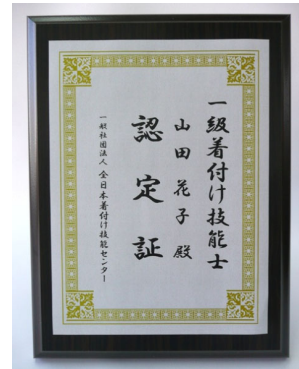 一級着付け技能士
山田花子殿
認定証
一般社団法人 全日本着付け技能センター